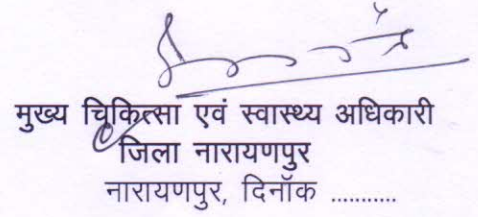 मुख्य चिकित्सा एवं स्वास्थ्य अधिकारी
जिला नारायणपुर
नारायणपुर, दिनॉक ...........